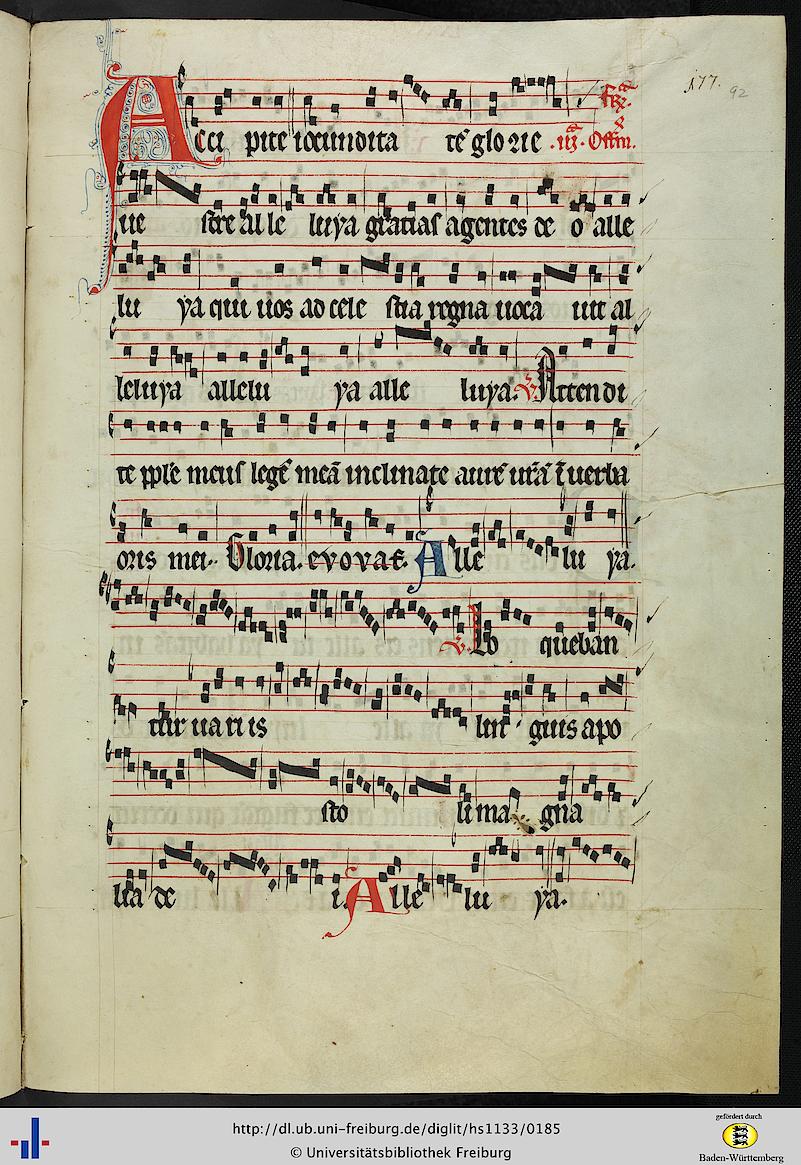 177.
92
Acci pite iocundita tē glorie .iij. Offm̄.
ue stre Alle luya gratias agentes de o alle
lu ya qui uos ad cele stia regna uoca uit al
leluya allelu ya alle luya. V. Attendi
te pple meus legē meā inclinate aurē urā ī uerba
oris mei. Gloria. evovae. Alle lu ya.
V. Lo quēban
tur uariis lin guis apo
sto li ma gna
lia de i. Alle lu ya.
http://dl.ub.uni-freiburg.de/diglit/hs1133/0185
© Universitätsbibliothek Freiburg
gefördert durch
Baden-Württemberg